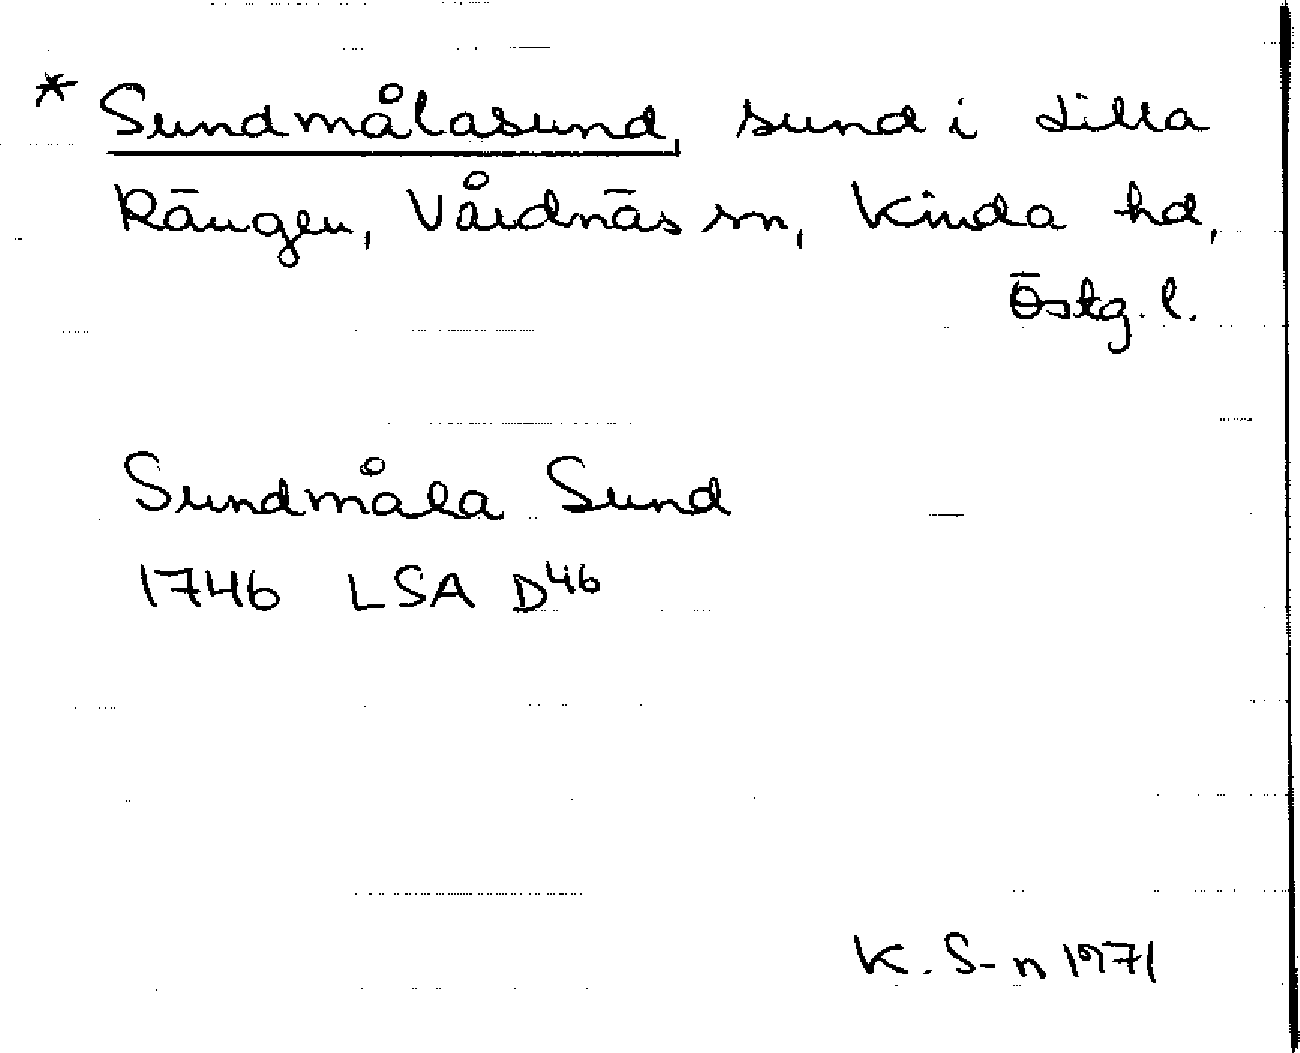 * Sundmålasund, sund i Lilla
Rängen, Vårdnäs sn, Kinda hd,
Östg. l.
Sundmåla Sund
1746 LSA D46
K. S-n 1971